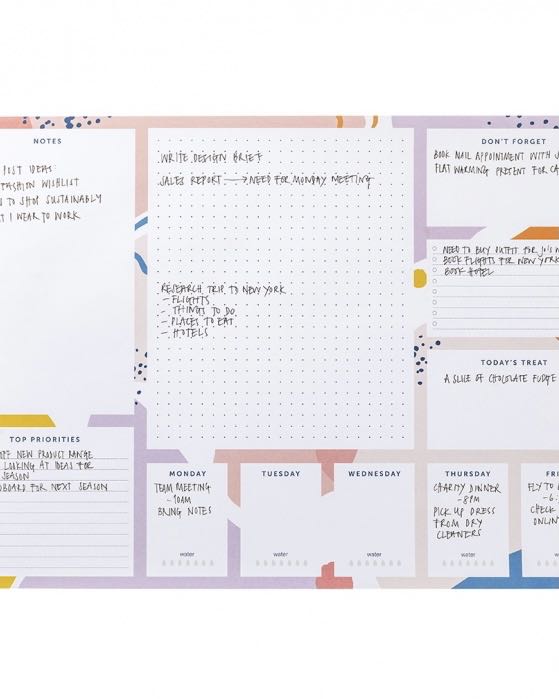 NOTES
POST IDEAS
FASHION WISHLIST
TO SHOP SUSTAINABLY
I WEAR TO WORK
TOP PRIORITIES
NEW PRODUCT RANGE
LOOKING AT IDEAS FOR
SEASON
FOR NEXT SEASON
WRITE DESIGN BRIEF
SALES REPORT → NEED FOR MONDAY MEETING
RESEARCH TRIP TO NEW YORK
- FLIGHTS
- THINGS TO DO
- PLACES TO EAT
- HOTELS
DON'T FORGET
BOOK NAIL APPOINTMENT WITH
FLAT WARMING PRESENT FOR
NEED TO BUY OUTFIT FOR
BOOK FLIGHTS FOR NEW YORK
BOOK HOTEL
TODAY'S TREAT
A SLICE OF CHOCOLATE FUDGE
MONDAY
TEAM MEETING
- 10AM
BRING NOTES
water
TUESDAY
water
WEDNESDAY
water
THURSDAY
CHARITY DINNER
- 8PM
PICK UP DRESS
FROM DRY
CLEANERS
water
FLY TO
CHECK
water